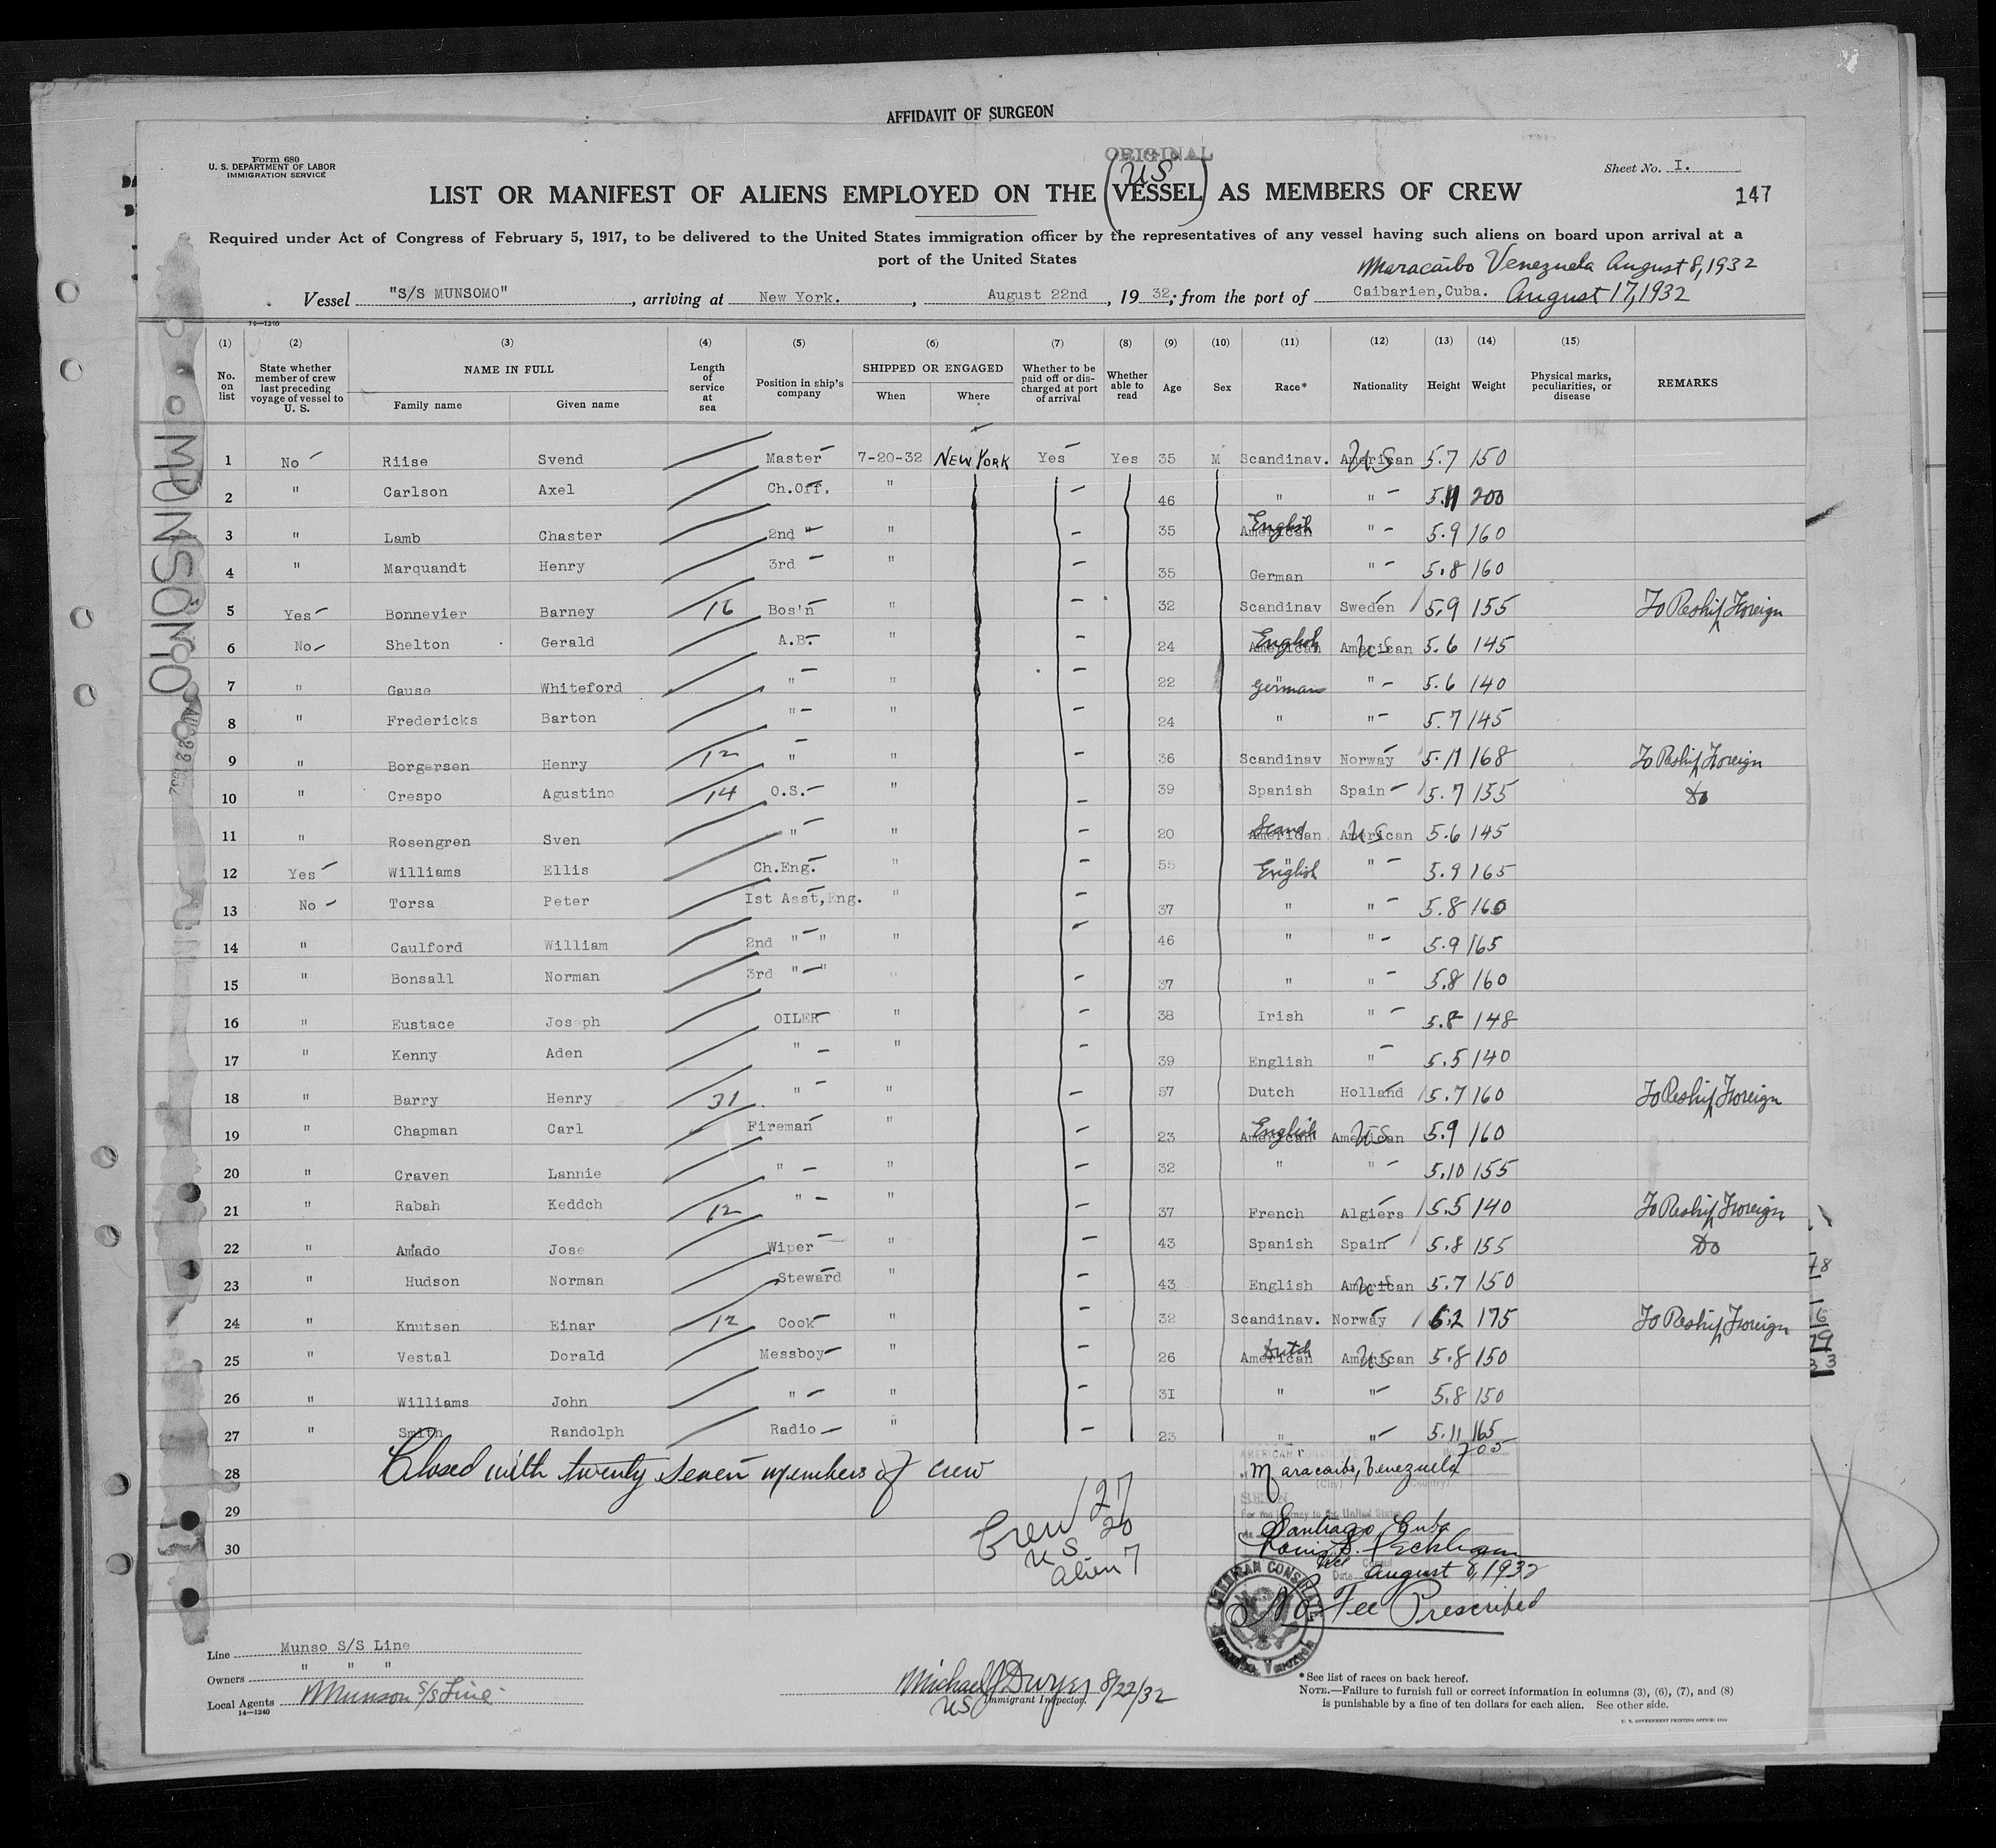 AFFIDAVIT OF SURGEON
Form 680
U. S. DEPARTMENT OF LABOR
IMMIGRATION SERVICE
ORIGINAL
US
Sheet No. I.
LIST OR MANIFEST OF ALIENS EMPLOYED ON THE (VESSEL) AS MEMBERS OF CREW
147
Required under Act of Congress of February 5, 1917, to be delivered to the United States immigration officer by the representatives of any vessel having such aliens on board upon arrival at a
port of the United States
Maracaibo Venezuela August 8, 1932
Vessel "S/S MUNSOMO", arriving at New York., August 22nd, 1932; from the port of Caibarien, Cuba. August 17, 1932
14—1240
(1) (2) (3) (4) (5) (6) (7) (8) (9) (10) (11) (12) (13) (14) (15)
No. on list State whether member of crew last preceding voyage of vessel to U. S. NAME IN FULL Family name Given name Length of service at sea Position in ship's company SHIPPED OR ENGAGED When Where Whether to be paid off or discharged at port of arrival Whether able to read Age Sex Race* Nationality Height Weight Physical marks, peculiarities, or disease REMARKS
1 No Riise Svend Master 7-20-32 NEW YORK Yes Yes 35 M Scandinav. American US 5.7 150
2 " Carlson Axel Ch.Off. " 46 " " 5.11 200
3 " Lamb Chaster 2nd " " 35 American English " 5.9 160
4 " Marquandt Henry 3rd " 35 German " 5.8 160
5 Yes Bonnevier Barney 16 Bos'n " 32 Scandinav Sweden 5.9 155 To Reship Foreign
6 No Shelton Gerald A.B. " 24 American English American US 5.6 145
7 " Gause Whiteford " " 22 " German " 5.6 140
8 " Fredericks Barton " " 24 " " 5.7 145
9 " Borgersen Henry 12 " " 36 Scandinav Norway 5.11 168 To Reship Foreign
10 " Crespo Agustino 14 O.S. " 39 Spanish Spain 5.7 155 Do
11 " Rosengren Sven " " 20 American Scand American US 5.6 145
12 Yes Williams Ellis Ch.Eng. " 55 " English " 5.9 165
13 No Torsa Peter Ist Asst,Eng. " 37 " " 5.8 160
14 " Caulford William 2nd " " " 46 " " 5.9 165
15 " Bonsall Norman 3rd " " " 37 " " 5.8 160
16 " Eustace Joseph OILER " 38 Irish " 5.8 148
17 " Kenny Aden " " 39 English " 5.5 140
18 " Barry Henry 31 " " 57 Dutch Holland 5.7 160 To Reship Foreign
19 " Chapman Carl Fireman " 23 American English American US 5.9 160
20 " Craven Lannie " " 32 " " 5.10 155
21 " Rabah Keddch 12 " " 37 French Algiers 5.5 140 To Reship Foreign
22 " Amado Jose Wiper " 43 Spanish Spain 5.8 155 Do
23 " Hudson Norman Steward " 43 English American US 5.7 150
24 " Knutsen Einar 12 Cook " 32 Scandinav. Norway 6.2 175 To Reship Foreign
25 " Vestal Dorald Messboy " 26 American Dutch American US 5.8 150
26 " Williams John " " 31 " " 5.8 150
27 " Smith Randolph Radio " 23 " " 5.11 165
28 Closed with twenty seven members of crew
29
30
MUNSOMO
Crew 27
US 20
alien 7
AMERICAN CONSULATE
Maracaibo, Venezuela
(City) (Country)
SEEN
For the journey to the United States
Santiago, Cuba
Consul
Date August 8, 1932
No Fee Prescribed
AMERICAN CONSULATE
Line Munso S/S Line
Owners " " "
Local Agents Munson S/S Line
14—1240
Michael J Dwyer 8/22/32
US Immigrant Inspector.
*See list of races on back hereof.
NOTE.—Failure to furnish full or correct information in columns (3), (6), (7), and (8)
is punishable by a fine of ten dollars for each alien. See other side.